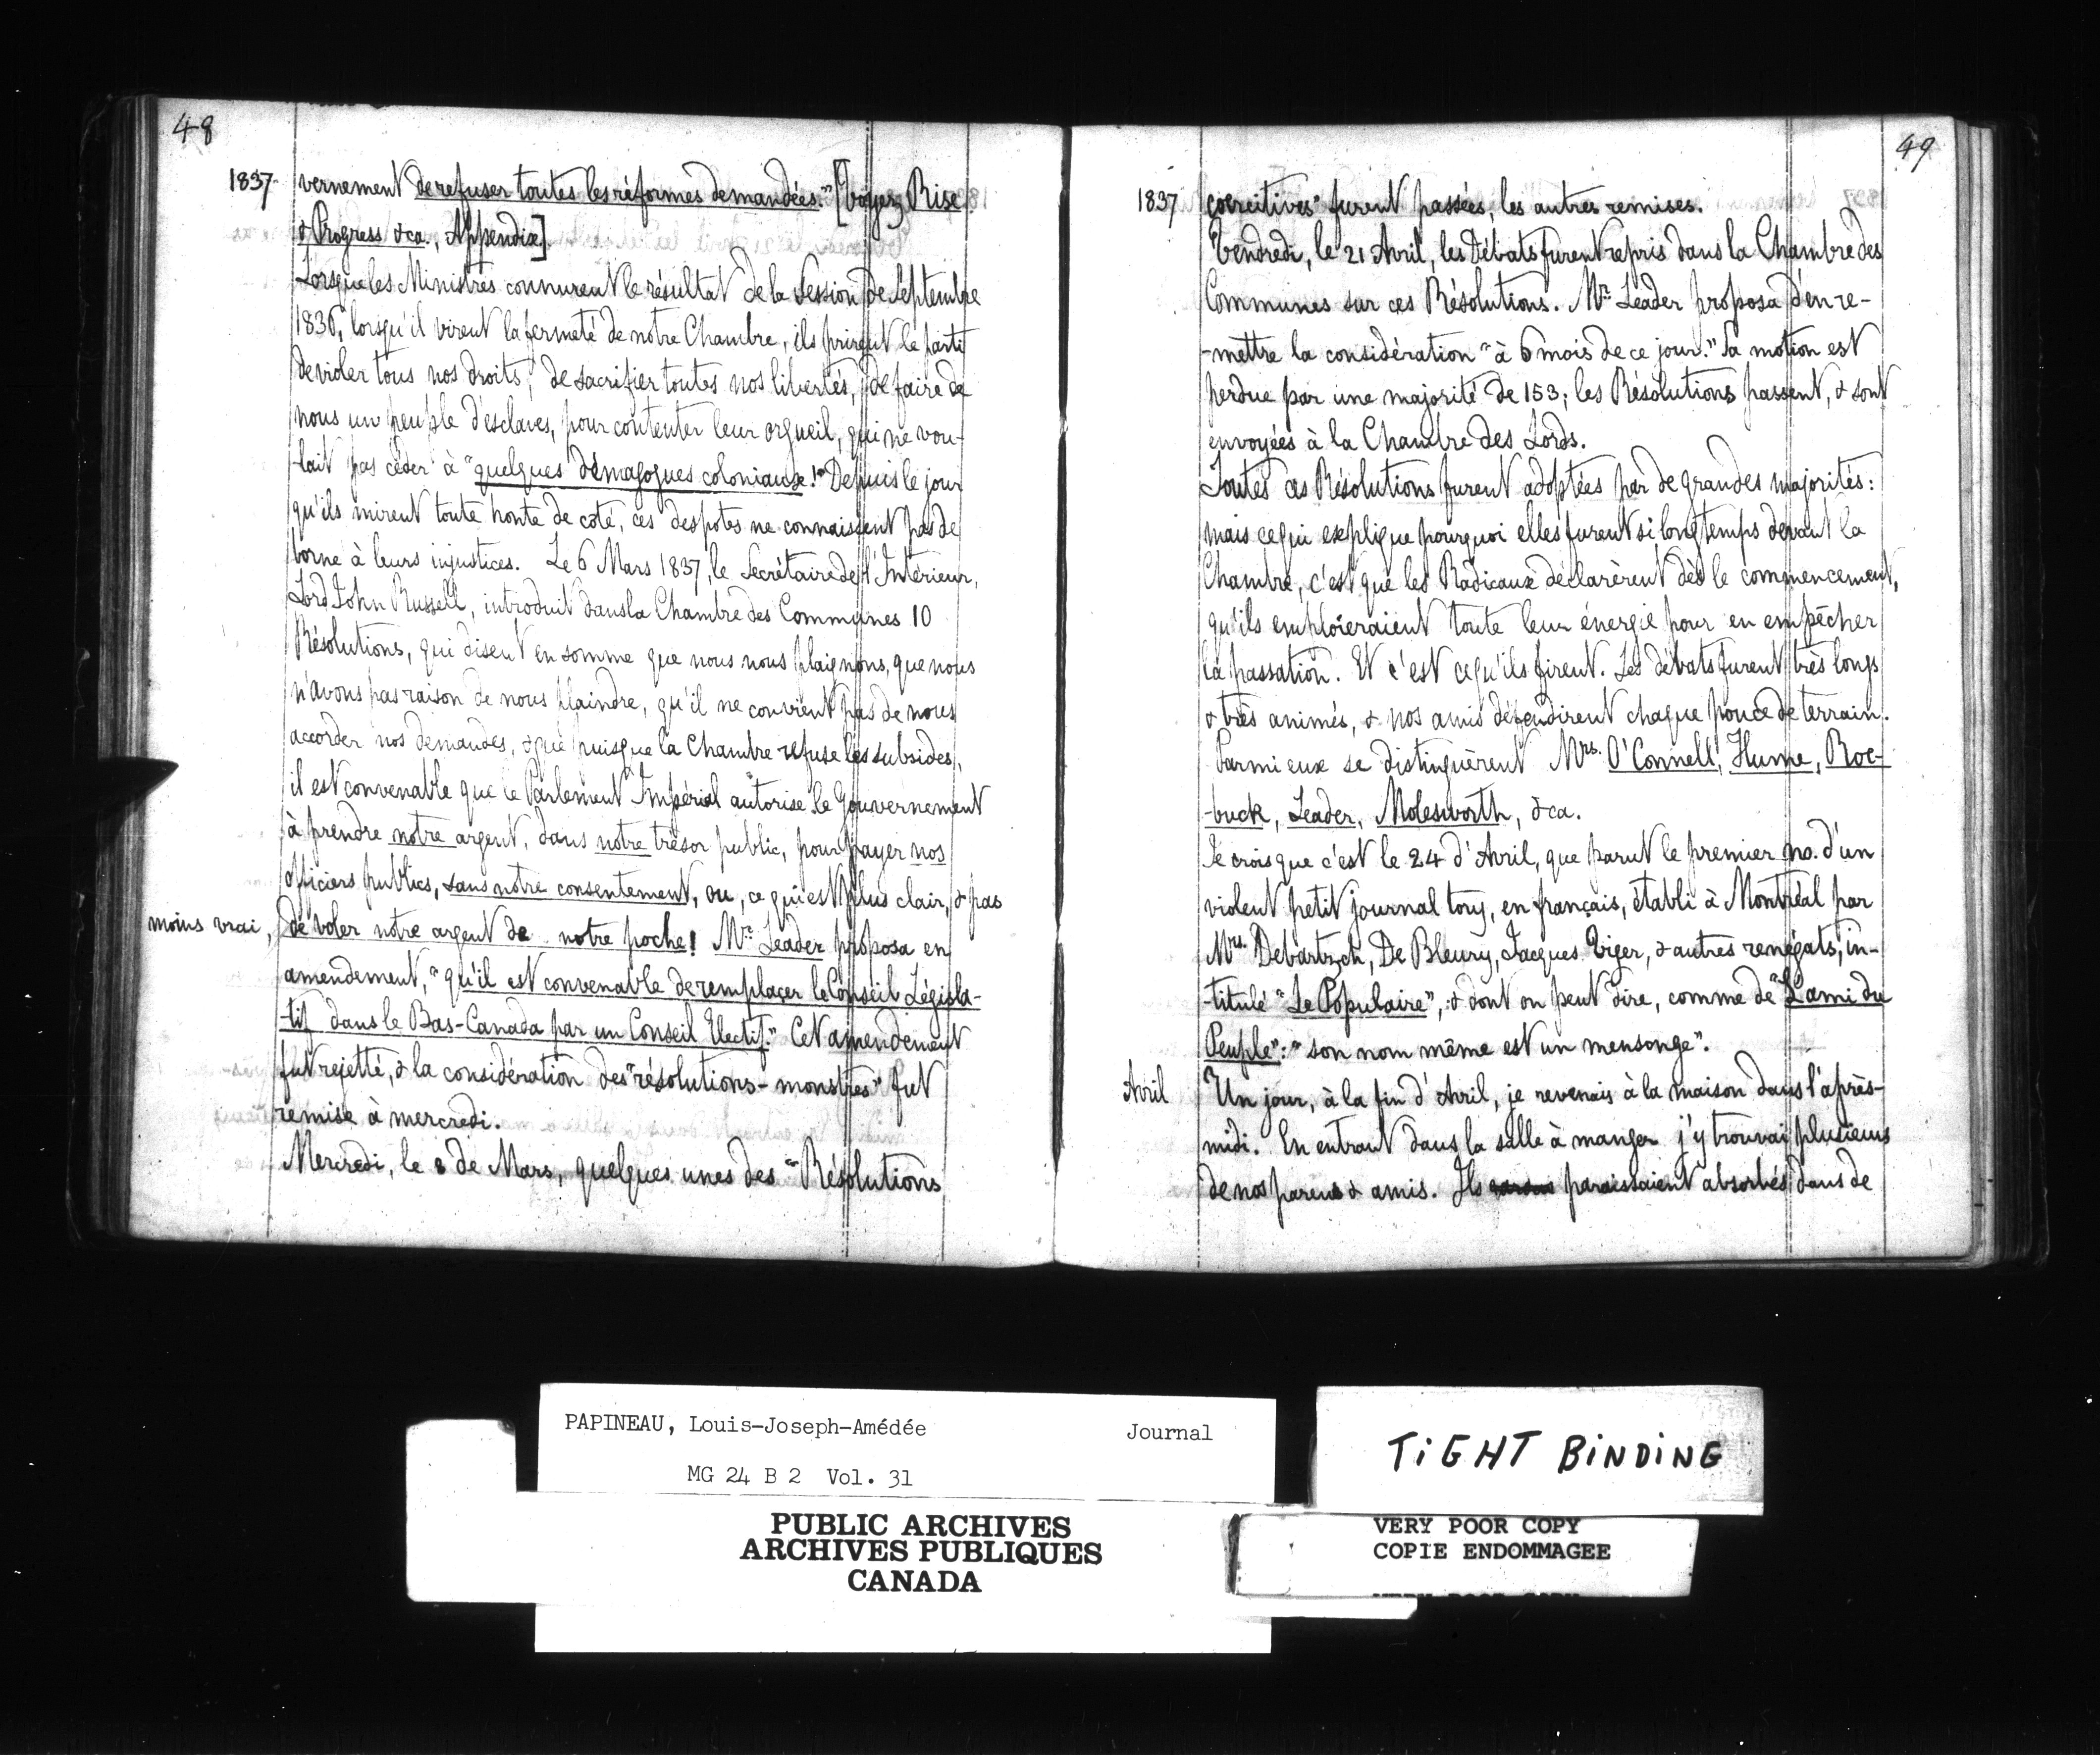 48
1837. vernement de refuser toutes les réformes demandées." [Voyez Rise
& Progress &ca., Appendix].
Lorsque les Ministres connurent le résultat de la Session de Septembre
1836, lorsqu'il virent la fermeté de notre Chambre, ils prirent le parti
de violer tous nos droits, de sacrifier toutes nos libertés, de faire de
nous un peuple d'esclaves, pour contenter leur orgueil, qui ne vou-
-lait pas céder à "quelques démagogues coloniaux!" Depuis le jour
qu'ils mirent toute honte de coté, ces despotes ne connaissent pas de
borne à leurs injustices. Le 6 Mars 1837, le Secrétaire de l'Intérieur,
Lord John Russell, introduit dans la Chambre des Communes 10
Résolutions, qui disent en somme que nous nous plaignons, que nous
n'avons pas raison de nous plaindre, qu'il ne convient pas de nous
accorder nos demandes, & que puisque la Chambre refuse les subsides,
il est convenable que le Parlement Impérial autorise le Gouvernement
à prendre notre argent, dans notre trésor public, pour payer nos
officiers publics, sans notre consentement, ou, ce qui est plus clair, & pas
moins vrai, de voler notre argent de notre poche! Mr. Leader proposa en
amendement, "qu'il est convenable de remplacer le Conseil Législa-
-tif dans le Bas-Canada par un Conseil Electif." Cet amendement
fut rejetté, & la considération des "résolutions-monstres" fut
remise à mercredi.
Mercredi, le 8 de Mars, quelques unes des "Résolutions
49
1837 coercitives" furent passées, les autres remises.
Vendredi, le 21 Avril, les Débats furent repris dans la Chambre des
Communes sur ces Résolutions. Mr. Leader proposa d'en re-
-mettre la considération "à 6 mois de ce jour." Sa motion est
perdue par une majorité de 153; les Résolutions passent, & sont
envoyées à la Chambre des Lords.
Toutes ces Résolutions furent adoptées par de grandes majorités:
mais ce qui explique pourquoi elles furent si longtemps devant la
Chambre, c'est que les Radicaux déclarèrent dès le commencement,
qu'ils emploieraient toute leur énergie pour en empêcher
la passation. Et c'est ce qu'ils firent. Les débats furent très longs
& très animés, & nos amis défendirent chaque pouce de terrain.
Parmi eux se distinguèrent Mrs. O'Connell, Hume, Roe-
-buck, Leader, Molesworth, &ca.
Je crois que c'est le 24 d'Avril, que parut le premier no. d'un
violent petit journal tory, en français, établi à Montréal par
Mrs. Debartzch, De Bleury, Jacques Viger, & autres renégats, in-
-titulé "Le Populaire", & dont on peut dire, comme de "L'ami du
Peuple": "son nom même est un mensonge".
Avril Un jour, à la fin d'Avril, je revenais à la maison dans l'après-
midi. En entrant dans la salle à manger j'y trouvai plusieurs
de nos parens & amis. Ils paraissaient absorbés dans de
PAPINEAU, Louis-Joseph-Amédée Journal
MG 24 B 2 Vol. 31
PUBLIC ARCHIVES
ARCHIVES PUBLIQUES
CANADA
TIGHT BINDING
VERY POOR COPY
COPIE ENDOMMAGEE